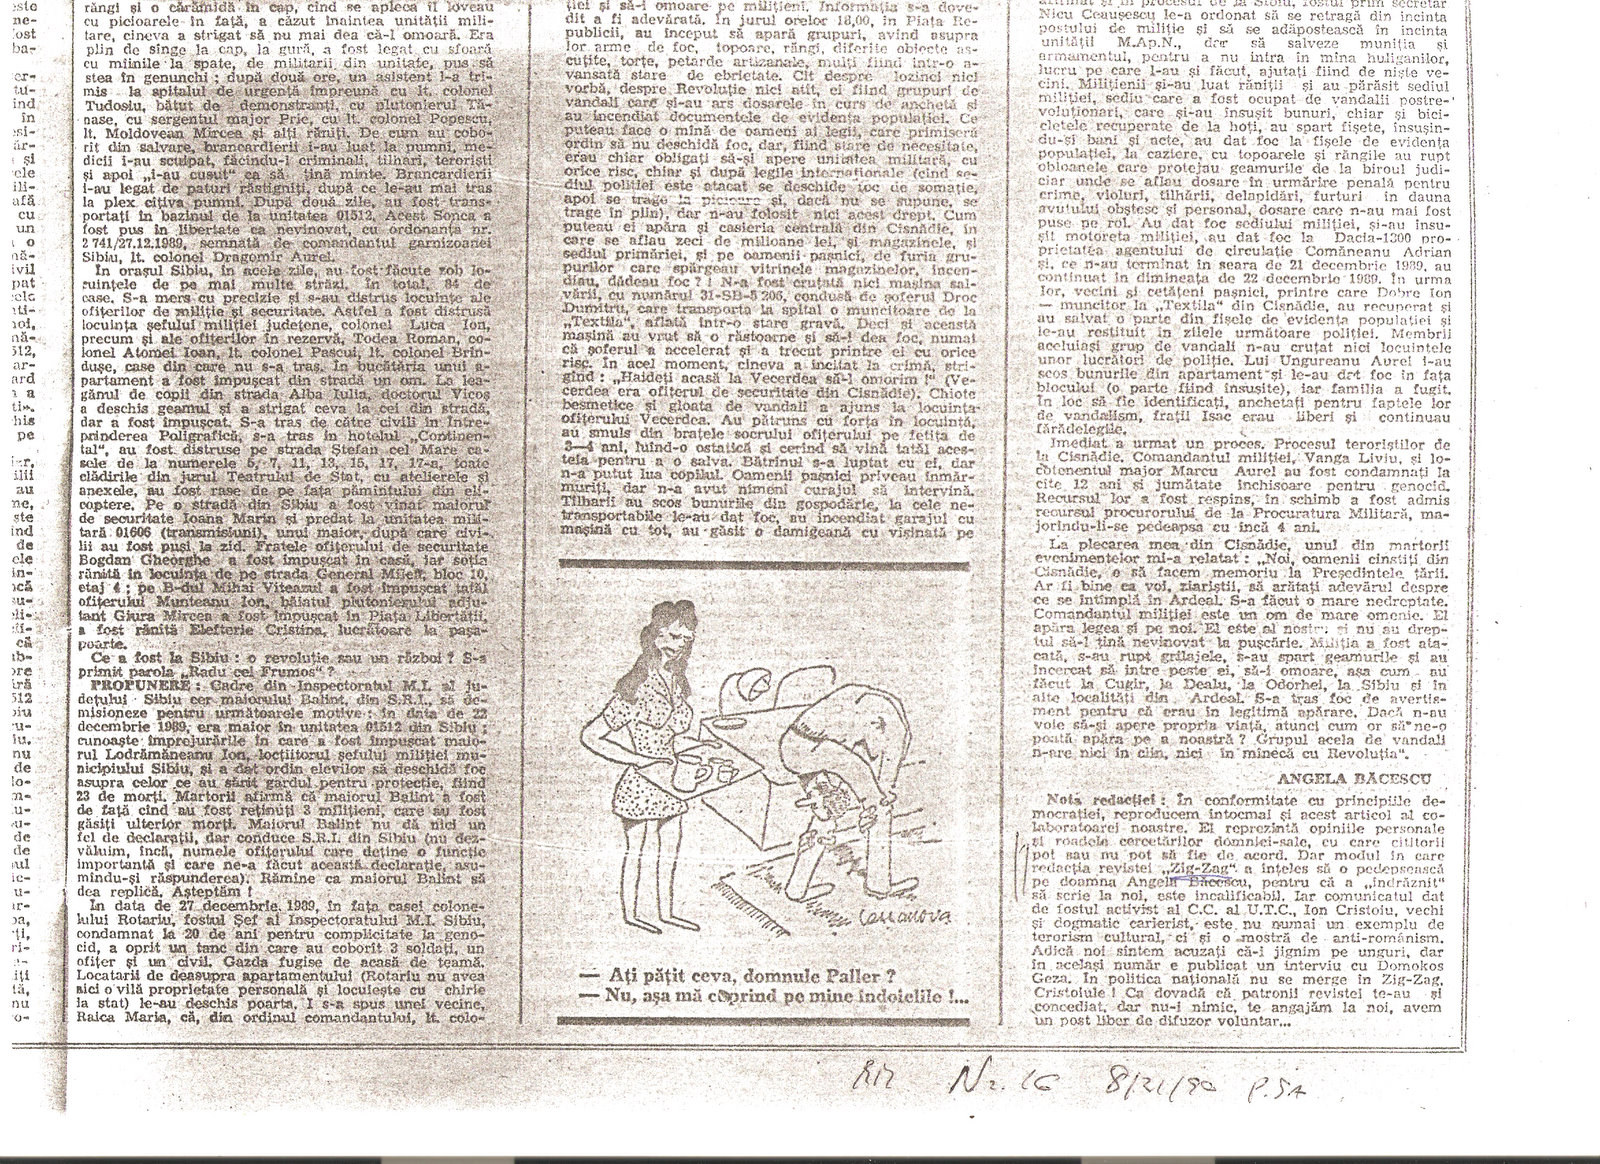 răngi și o cărămidă în cap, cînd se apleca îl loveau
cu picioarele în față, a căzut înaintea unității mili-
tare, cineva a strigat să nu mai dea că-l omoară. Era
plin de sînge la cap, la gură, a fost legat cu sfoară
cu mîinile la spate, de militarii din unitate, pus să
stea în genunchi ; după două ore, un asistent l-a tri-
mis la spitalul de urgență împreună cu lt. colonel
Tudosiu, bătut de demonstranți, cu plutonierul Tă-
nase, cu sergentul major Pric, cu lt. colonel Popescu,
lt. Moldovean Mircea și alți răniți. De cum au cobo-
rît din salvare, brancardierii i-au luat la pumni, me-
dicii i-au scuipat, făcîndu-i criminali, tîlhari, teroriști
și apoi „i-au cusut“ ca să țină minte. Brancardierii
i-au legat de paturi răstigniți, după ce le-au mai tras
la plex cîțiva pumni. După două zile, au fost trans-
portați în bazinul de la unitatea 01512. Acest Sonca a
fost pus în libertate ca nevinovat, cu ordonanța nr.
2 741/27.12.1989, semnată de comandantul garnizoanei
Sibiu, lt. colonel Dragomir Aurel.
In orașul Sibiu, în acele zile, au fost făcute zob lo-
cuințele de pe mai multe străzi. In total, 84 de
case. S-a mers cu precizie și s-au distrus locuințe ale
ofițerilor de miliție și securitate. Astfel a fost distrusă
locuința șefului miliției județene, colonel Luca Ion,
precum și ale ofițerilor în rezervă, Todea Roman, co-
lonel Atomei Ioan, lt. colonel Pascui, lt. colonel Brîn-
dușe, case din care nu s-a tras. In bucătăria unui a-
partament a fost împușcat din stradă un om. La lea-
gănul de copii din strada Alba Iulia, doctorul Vicoș
a deschis geamul și a strigat ceva la cei din stradă,
dar a fost împușcat. S-a tras de către civili în Între-
prinderea Poligrafică, s-a tras în hotelul „Continen-
tal“, au fost distruse pe strada Ștefan cel Mare ca-
sele de la numerele 5, 7, 11, 13, 15, 17, 17-a, toate
clădirile din jurul Teatrului de Stat, cu atelierele și
anexele, au fost rase de pe fața pămîntului din eli-
coptere. Pe o stradă din Sibiu a fost vînat maiorul
de securitate Ioana Marin și predat la unitatea mili-
tară 01606 (transmisiuni), unui maior, după care civi-
lii au fost puși la zid. Fratele ofițerului de securitate
Bogdan Gheorghe a fost împușcat în casă, iar soția
rănită în locuința de pe strada General Milea, bloc 10,
etaj 4 ; pe B-dul Mihai Viteazul a fost împușcat tatăl
ofițerului Munteanu Ion, băiatul plutonierului adju-
tant Giura Mircea a fost împușcat în Piața Libertății,
a fost rănită Elefterie Cristina, lucrătoare la pașa-
poarte.
Ce a fost la Sibiu : o revoluție sau un război ? S-a
primit parola „Radu cel Frumos“ ?
PROPUNERE : Cadre din Inspectoratul M.I. al ju-
dețului Sibiu cer maiorului Balint, din S.R.I., să de-
misioneze pentru următoarele motive : în data de 22
decembrie 1989, era maior în unitatea 01512 din Sibiu ;
cunoaște împrejurările în care a fost împușcat maio-
rul Lodrămăneanu Ion, locțiitorul șefului miliției mu-
nicipiului Sibiu, și a dat ordin elevilor să deschidă foc
asupra celor ce au sărit gardul pentru protecție, fiind
23 de morți. Martorii afirmă că maiorul Balint a fost
de față cînd au fost reținuți 3 milițieni, care au fost
găsiți ulterior morți. Maiorul Balint nu dă nici un
fel de declarații, dar conduce S.R.I. din Sibiu (nu dez-
văluim, încă, numele ofițerului care deține o funcție
importantă și care ne-a făcut această declarație, asu-
mîndu-și răspunderea). Rămîne ca maiorul Balint să
dea replică. Așteptăm !
In data de 27 decembrie 1989, în fața casei colone-
lului Rotariu, fostul Șef al Inspectoratului M.I. Sibiu,
condamnat la 20 de ani pentru complicitate la geno-
cid, a oprit un tanc din care au coborît 3 soldați, un
ofițer și un civil. Gazda fugise de acasă de teamă.
Locatarii de deasupra apartamentului (Rotariu nu avea
nici o vilă proprietate personală și locuiește cu chirie
la stat) le-au deschis poarta. I s-a spus unei vecine,
Raica Maria, că, din ordinul comandantului, lt. colo-
ței și să-i omoare pe milițieni. Informația s-a dove-
dit a fi adevărată. In jurul orelor 18,00, în Piața Re-
publicii, au început să apară grupuri, avînd asupra
lor arme de foc, topoare, răngi, diferite obiecte as-
cuțite, torțe, petarde artizanale, mulți fiind într-o a-
vansată stare de ebrietate. Cît despre lozinci nici
vorbă, despre Revoluție nici atît, ei fiind grupuri de
vandali care și-au ars dosarele în curs de anchetă și
au incendiat documentele de evidența populației. Ce
puteau face o mînă de oameni ai legii, care primiseră
ordin să nu deschidă foc, dar, fiind stare de necesitate,
erau chiar obligați să-și apere unitatea militară, cu
orice risc, chiar și după legile internaționale (cînd se-
diul poliției este atacat se deschide foc de somație,
apoi se trage la picioare și, dacă nu se supune, se
trage în plin), dar n-au folosit nici acest drept. Cum
puteau ei apăra și casieria centrală din Cisnădie, în
care se aflau zeci de milioane lei, și magazinele, și
sediul primăriei, și pe oamenii pașnici, de furia gru-
purilor care spărgeau vitrinele magazinelor, incen-
diau, dădeau foc ? ! N-a fost cruțată nici mașina sal-
vării, cu numărul 31-SB-5 206, condusă de șoferul Droc
Dumitru, care transporta la spital o muncitoare de la
„Textila“, aflată într-o stare gravă. Deci și această
mașină au vrut să o răstoarne și să-i dea foc, numai
că șoferul a accelerat și a trecut printre ei cu orice
risc. În acel moment, cineva a incitat la crimă, stri-
gînd : „Haideți acasă la Vecerdea să-l omorîm !“ (Ve-
cerdea era ofițerul de securitate din Cisnădie). Chiote
besmetice și gloata de vandali a ajuns la locuința
ofițerului Vecerdea. Au pătruns cu forța în locuință,
au smuls din brațele socrului ofițerului pe fetița de
3—4 ani, luînd-o ostatică și cerînd să vină tatăl aces-
teia pentru a o salva. Bătrînul s-a luptat cu ei, dar
n-a putut lua copilul. Oamenii pașnici priveau înmăr-
muriți, dar n-a avut nimeni curajul să intervină.
Tîlharii au scos bunurile din gospodărie, la cele ne-
transportabile le-au dat foc, au incendiat garajul cu
mașină cu tot, au găsit o damigeană cu vișinată pe
Casanova
— Ați pățit ceva, domnule Paller ?
— Nu, așa mă cuprind pe mine îndoielile !...
afirmat și în procesul de la Sibiu, fostul prim secretar
Nicu Ceaușescu le-a ordonat să se retragă din incinta
postului de miliție și să se adăpostească în incinta
unității M.Ap.N., dar să salveze muniția și
armamentul, pentru a nu intra în mîna huliganilor,
lucru pe care l-au și făcut, ajutați fiind de niște ve-
cini. Milițienii și-au luat răniții și au părăsit sediul
miliției, sediu care a fost ocupat de vandalii postre-
voluționari, care și-au însușit bunuri, chiar și bici-
cletele recuperate de la hoți, au spart fișete, însușin-
du-și bani și acte, au dat foc la fișele de evidența
populației, la caziere, cu topoarele și răngile au rupt
obloanele care protejau geamurile de la biroul judi-
ciar unde se aflau dosare în urmărire penală pentru
crime, violuri, tîlhării, delapidări, furturi în dauna
avutului obștesc și personal, dosare care n-au mai fost
puse pe rol. Au dat foc sediului miliției, și-au însu-
șit motoreta miliției, au dat foc la Dacia-1300 pro-
prietatea agentului de circulație Comăneanu Adrian
și, ce n-au terminat în seara de 21 decembrie 1989, au
continuat în dimineața de 22 decembrie 1989. In urma
lor, vecini și cetățeni pașnici, printre care Dobre Ion
— muncitor la „Textila“ din Cisnădie, au recuperat și
au salvat o parte din fișele de evidența populației și
le-au restituit în zilele următoare poliției. Membrii
aceluiași grup de vandali n-au cruțat nici locuințele
unor lucrători de poliție. Lui Ungureanu Aurel i-au
scos bunurile din apartament și le-au dat foc în fața
blocului (o parte fiind însușite), iar familia a fugit.
În loc să fie identificați, anchetați pentru faptele lor
de vandalism, frații Isac erau liberi și continuau
fărădelegile.
Imediat a urmat un proces. Procesul teroriștilor de
la Cisnădie. Comandantul miliției, Vanga Liviu, și lo-
cotenentul major Marcu Aurel au fost condamnați la
cîte 12 ani și jumătate închisoare pentru genocid.
Recursul lor a fost respins, în schimb a fost admis
recursul procurorului de la Procuratura Militară, ma-
jorîndu-li-se pedeapsa cu încă 4 ani.
La plecarea mea din Cisnădie, unul din martorii
evenimentelor mi-a relatat : „Noi, oamenii cinstiți din
Cisnădie, o să facem memoriu la Președintele țării.
Ar fi bine ca voi, ziariștii, să arătați adevărul despre
ce se întîmplă în Ardeal. S-a făcut o mare nedreptate.
Comandantul miliției este un om de mare omenie. El
apăra legea și pe noi. El este al nostru și nu au drep-
tul să-l țină nevinovat la pușcărie. Miliția a fost ata-
cată, s-au rupt grilajele, s-au spart geamurile și au
încercat să intre peste ei, să-i omoare, așa cum au
făcut la Cugir, la Dealu, la Odorhei, la Sibiu și în
alte localități din Ardeal. S-a tras foc de avertis-
ment pentru că erau în legitimă apărare. Dacă n-au
voie să-și apere propria viață, atunci cum or să ne-o
poată apăra pe a noastră ? Grupul acela de vandali
n-are nici în clin, nici în mînecă cu Revoluția“.
ANGELA BĂCESCU
Nota redacției : In conformitate cu principiile de-
mocrației, reproducem întocmai și acest articol al co-
laboratoarei noastre. El reprezintă opiniile personale
și roadele cercetărilor domniei-sale, cu care cititorii
pot sau nu pot să fie de acord. Dar modul în care
redacția revistei „Zig-Zag“ a înțeles să o pedepsească
pe doamna Angela Băcescu, pentru că a „îndrăznit“
să scrie la noi, este incalificabil. Iar comunicatul dat
de fostul activist al C.C. al U.T.C., Ion Cristoiu, vechi
și dogmatic carierist, este nu numai un exemplu de
terorism cultural, ci și o mostră de anti-românism.
Adică noi sîntem acuzați că-i jignim pe unguri, dar
în același număr e publicat un interviu cu Domokos
Geza. In politica națională nu se merge în Zig-Zag,
Cristoiule ! Ca dovadă că patronii revistei te-au și
concediat, dar nu-i nimic, te angajăm la noi, avem
un post liber de difuzor voluntar...
RM Nr. 16 8/21/90 p.5A